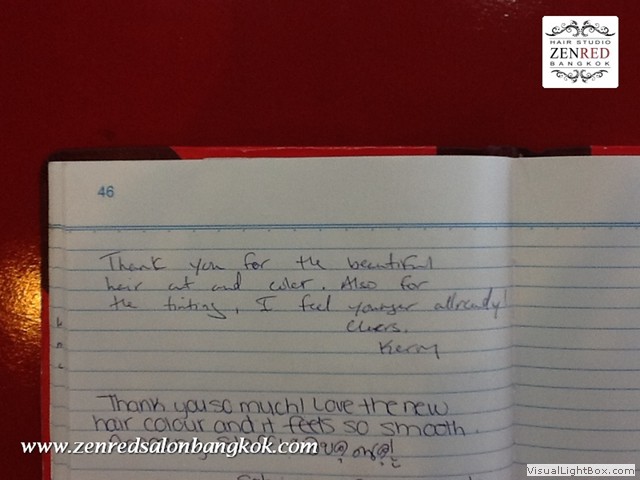 HAIR STUDIO
ZENRED
BANGKOK
46
Thank you for the beautiful
hair cut and color. Also for
the tinting, I feel younger allready!
Cheers.
Kerry
Thank you so much! Love the new
hair colour and it feels so smooth.
www.zenredsalonbangkok.com
VisualLightBox.com